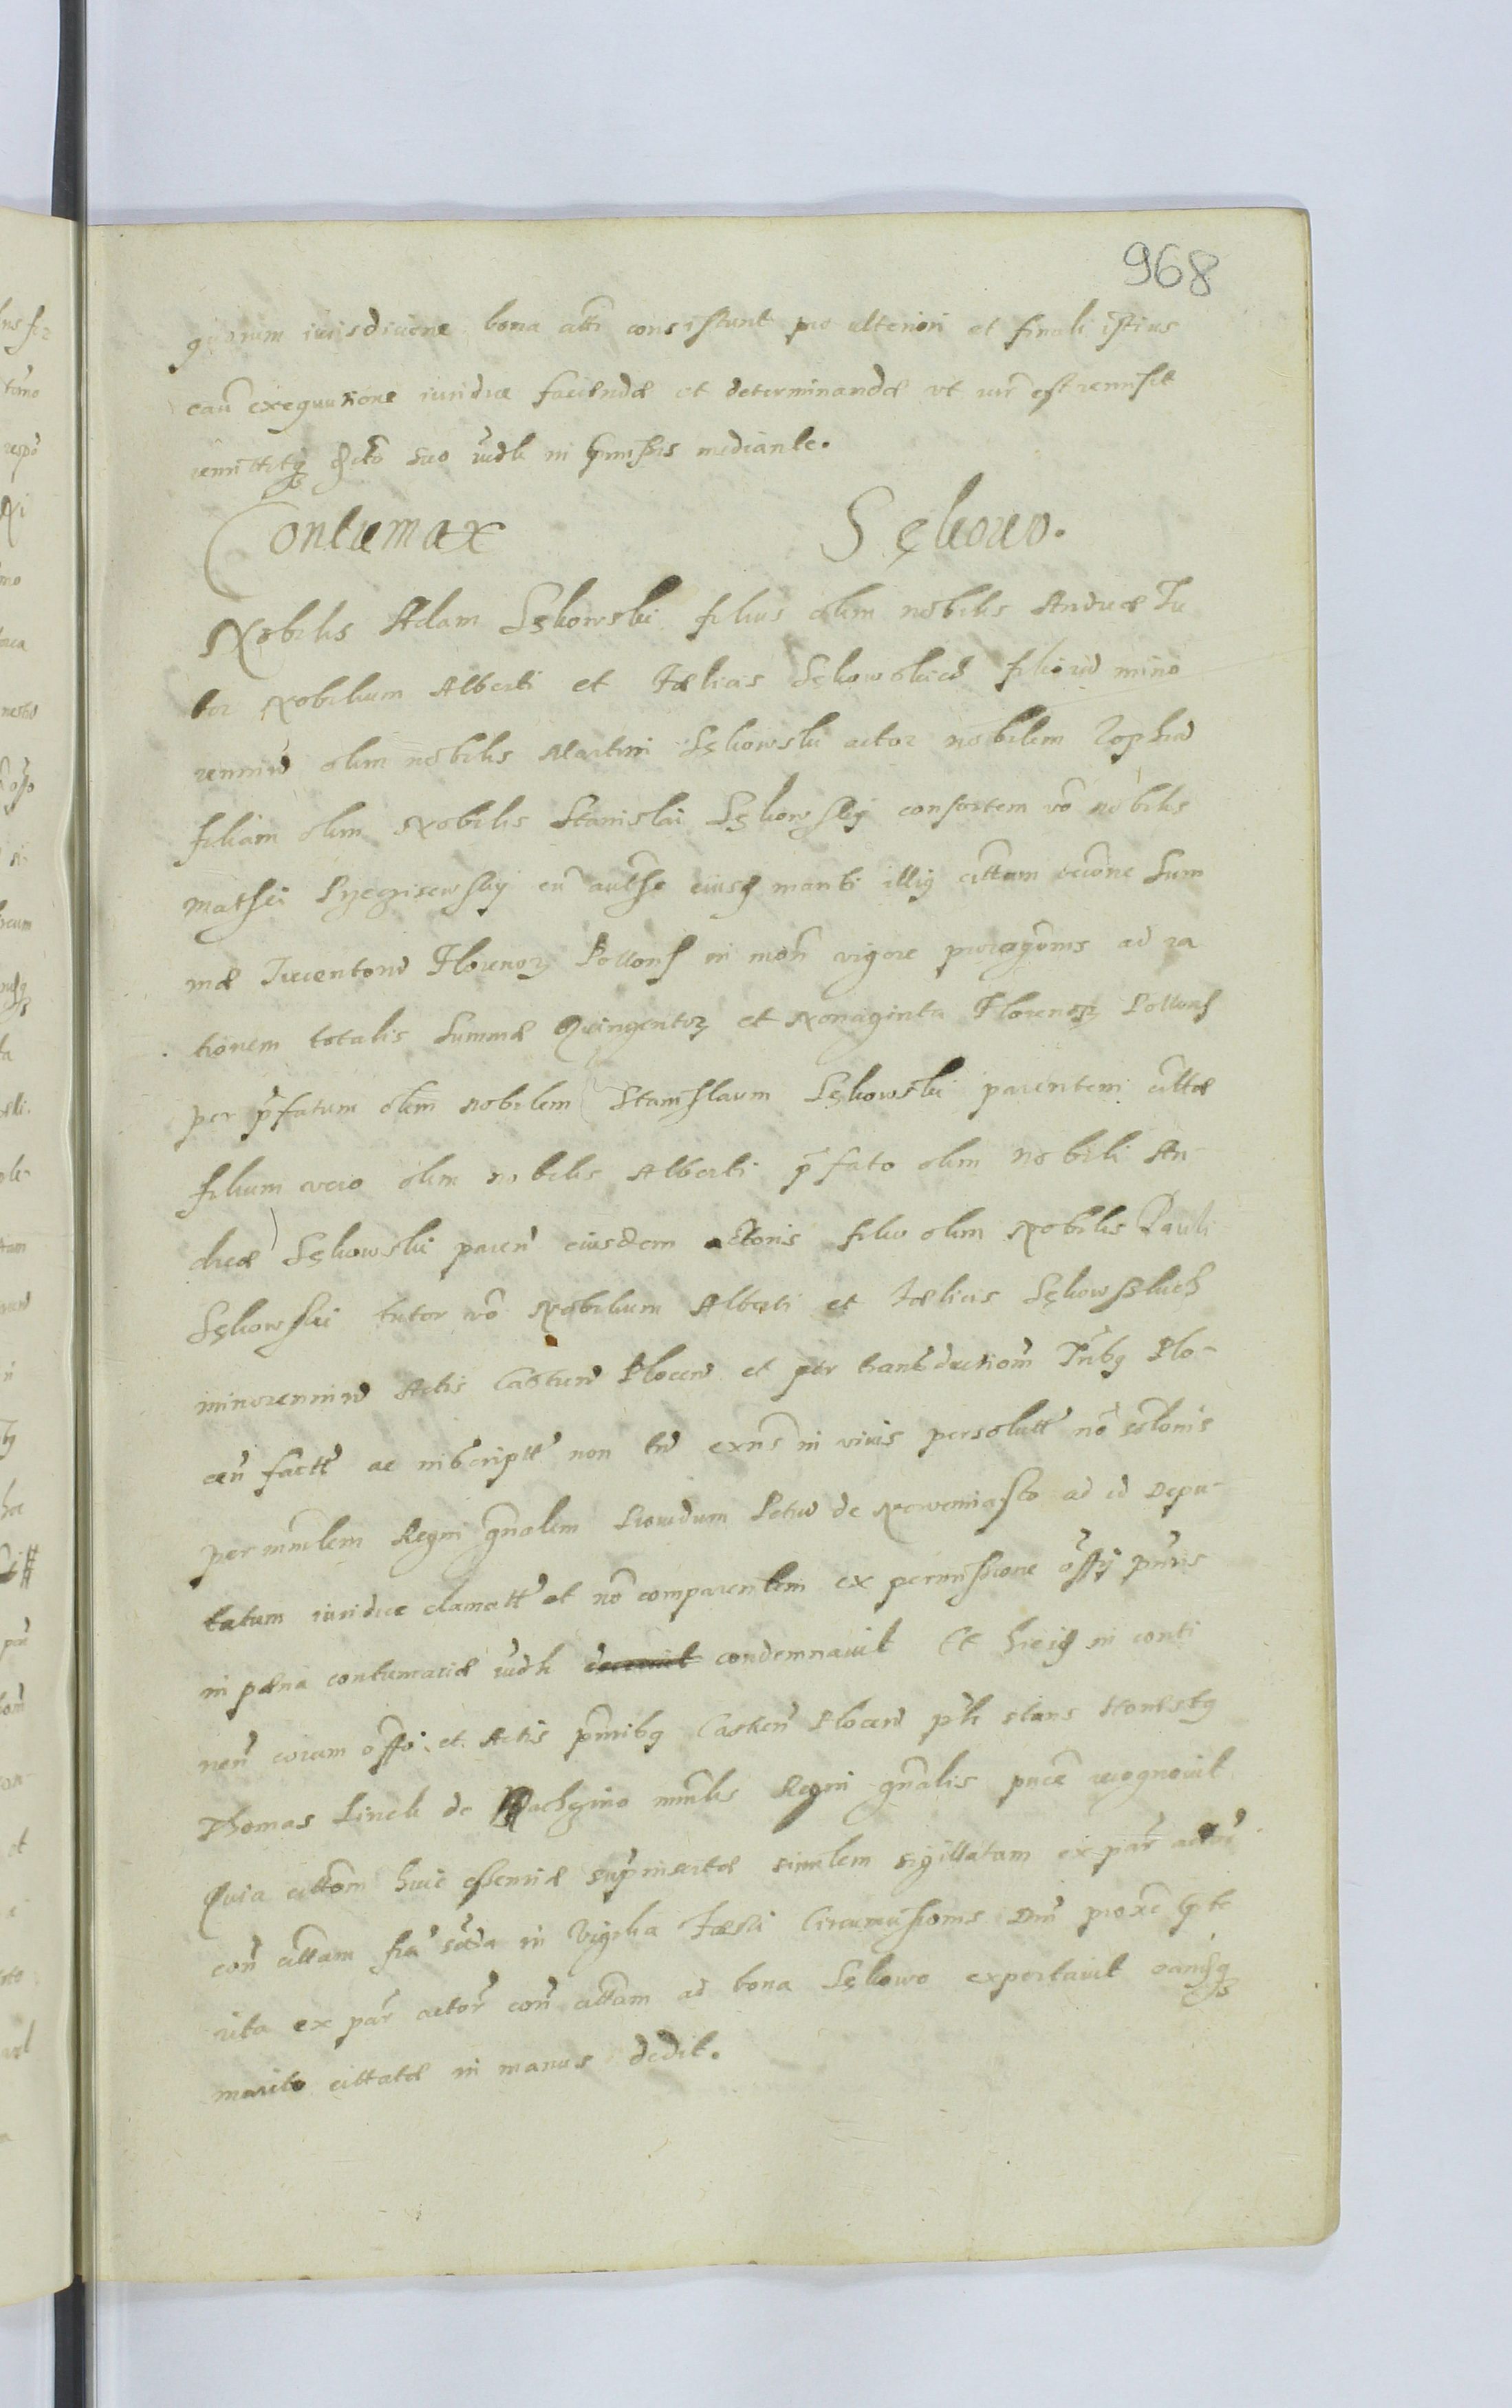 968
quorum iurisdicione bona att̃i consistunt pro ulteriori et finali istius
cau᷉ exequutione iuridicæ faciendæ et determinandæ vt iur᷉ est remisit
remittitq̃ suo iudli in p̃missis mediante.
Contumax Sękowo.
Nobilis Adam Sękowski filius olim nobilis Andreæ Tu
tor Nobilium Alberti et Fælicis Sękowskich filiorũ mino
rennĩũ olim nobilis Martini Sękowski actor nobilem Zophiã
filiam olim Nobilis Stanislai Sękowskij consortem vo᷉ nobilis
Mathei cũ auth᷉e eiusd mariti illiq cittam racione Sum
mæ Trecentorũ Florenorȝ Pollonſ in mon᷉ vigore ad ra
tionem totalis Summæ Quingentorȝ et Nonaginta Florenorȝ Pollonſ
per p̃fatum olim nobilem Stanislaum Sękowski parentem cittæ
filium vero olim nobilis Alberti p̃fato olim nobili An-
dreæ Sękowski paren᷉ eiusdem actoris filio olim Nobilis Pauli
Sękowski tutor vo᷉ Nobilium Alberti et Fælicis Sękowskich
minorenniũ Actis Castren᷉ Plocen᷉ et per transductiom᷉ Tr̃ibq Plo-
cen᷉ factt᷉ ac inscriptt᷉ non tñ exñs in vivis persolutt᷉ no᷉
per minlem Regni gñalem Providum Petrũ de Nowemiasto ad id Depu-
tatum iuridice clamatt᷉ et no᷉ comparentem ex permissione off᷉ij pñtis
in pæna contumaciæ iudli condemnavit Et hicq in conti
nen᷉ coram off᷉o. et Actis pñtibq Castren᷉ Plocen᷉ p᷉lr stans Honestq
Thomas de minlis Regni gñalis pñce recognovit
Quia cittom᷉ huic essentiæ sup᷉insertæ similem sigillatam ex par᷉ actor᷉
con᷉ cittam fria᷉ secda in Vigilia Fæsti Circumcisionis Dni᷉ prox᷉e p̃te
rita ex par᷉ actor᷉ con᷉ cittam ad bona Sękowo exportavit eamq̃
marito cittatæ in manus dedit.